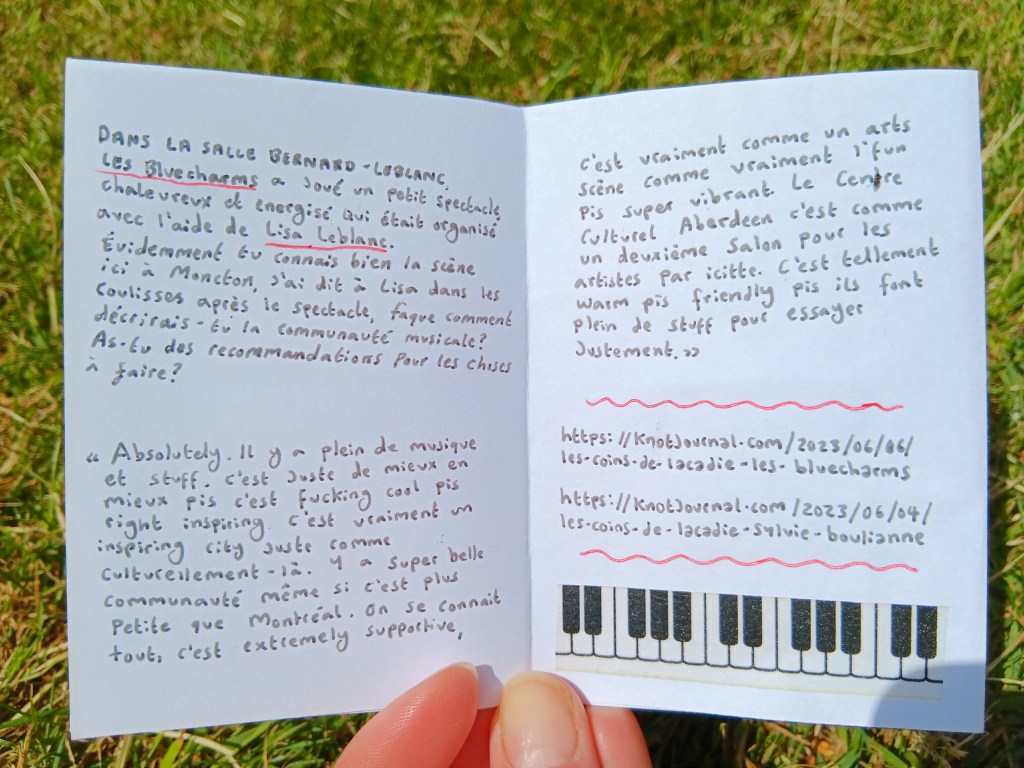 DANS LA SALLE BERNARD-LEBLANC,
Les Bluecharms a joué un petit spectacle
chaleureux et energisé qui était organisé
avec l'aide de Lisa Leblanc.
Évidemment tu connais bien la scène
ici à Moncton, j'ai dit à Lisa dans les
coulisses après le spectacle, faque comment
décrirais-tu la communauté musicale?
As-tu des recommandations pour les choses
à faire?
« Absolutely. Il y a plein de musique
et stuff. C'est juste de mieux en
mieux pis c'est fucking cool pis
right inspiring. C'est vraiment un
inspiring city juste comme
culturellement-là. Y a super belle
communauté même si c'est plus
petite que Montréal. On se connait
tout, c'est extremely supportive,
c'est vraiment comme un arts
scène comme vraiment l'fun
pis super vibrant. Le Centre
Culturel Aberdeen c'est comme
un deuxième salon pour les
artistes par icitte. C'est tellement
warm pis friendly pis ils font
plein de stuff pour essayer
justement. »
https://KnotJournal.com/2023/06/06/
les-coins-de-lacadie-les-bluecharms
https://KnotJournal.com/2023/06/04/
les-coins-de-lacadie-Sylvie-boulianne